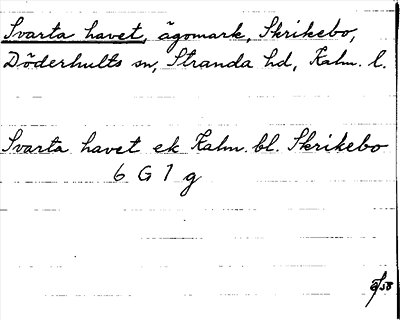 Svarta havet, ägomark, Skrikebo,
Döderhults sn, Stranda hd, Kalm. l.
Svarta havet ek Kalm. bl. Skrikebo
6 G 1 g